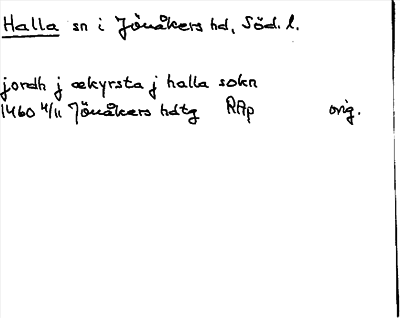 Halla sn i Jönåkers hd, Söd. l.
jordh j ækyrsta j halla sokn
1460 4/11 Jönåkers hdtg RAp orig.